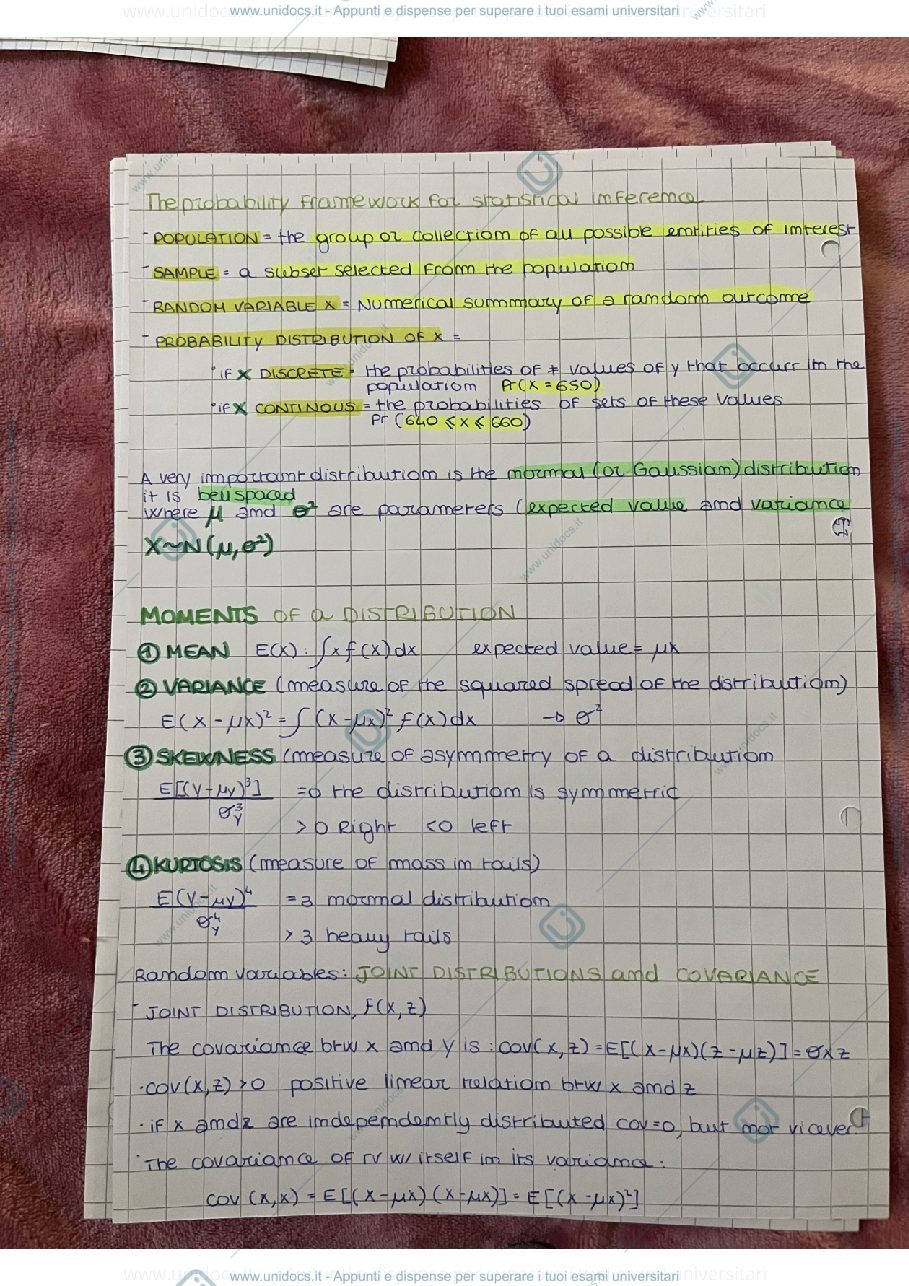 www.unidocs.it - Appunti e dispense per superare i tuoi esami universitari
The probability framework for statistical inference
- POPULATION = the group or collection of all possible entities of interest
- SAMPLE = a subset selected from the population
- RANDOM VARIABLE X = Numerical summary of a random outcome
- PROBABILITY DISTRIBUTION OF X =
• IF X DISCRETE = the probabilities of ≠ values of y that occurr in the
population Pr(X = 650)
• IF X CONTINOUS = the probabilities of sets of these values
Pr (640 ≤ X ≤ 660)
A very important distribution is the normal (or Gaussian) distribution
it is bell spaced
where μ and σ² are parameters (expected value and variance
X~N(μ,σ²)
MOMENTS OF a DISTRIBUTION
① MEAN E(X) : ∫x f(x)dx expected value = μx
② VARIANCE (measure of the squared spread of the distribution)
E(X - μx)² = ∫(x-μx)² f(x)dx → σ²
③ SKEWNESS (measure of asymmetry of a distribution
E[(Y-μy)³] / σ³y =0 the distribution is symmetric
> 0 Right <0 left
④ KURTOSIS (measure of mass in tails)
E(Y-μy)⁴ / σ⁴y = 3 normal distribution
> 3 heavy tails
Random variables: JOINT DISTRIBUTIONS and COVARIANCE
- JOINT DISTRIBUTION, f(X,Z)
The covariance btw x and y is : cov(x,z) = E[(x-μx)(z-μz)] = σxz
• cov(x,z) > 0 positive linear relation btw x and z
• if x and z are independently distributed cov=0, but not vicever
• The covariance of rv w/ itself in its variance:
cov (x,x) = E[(x-μx)(x-μx)] = E[(x-μx)²]
www.unidocs.it - Appunti e dispense per superare i tuoi esami universitari